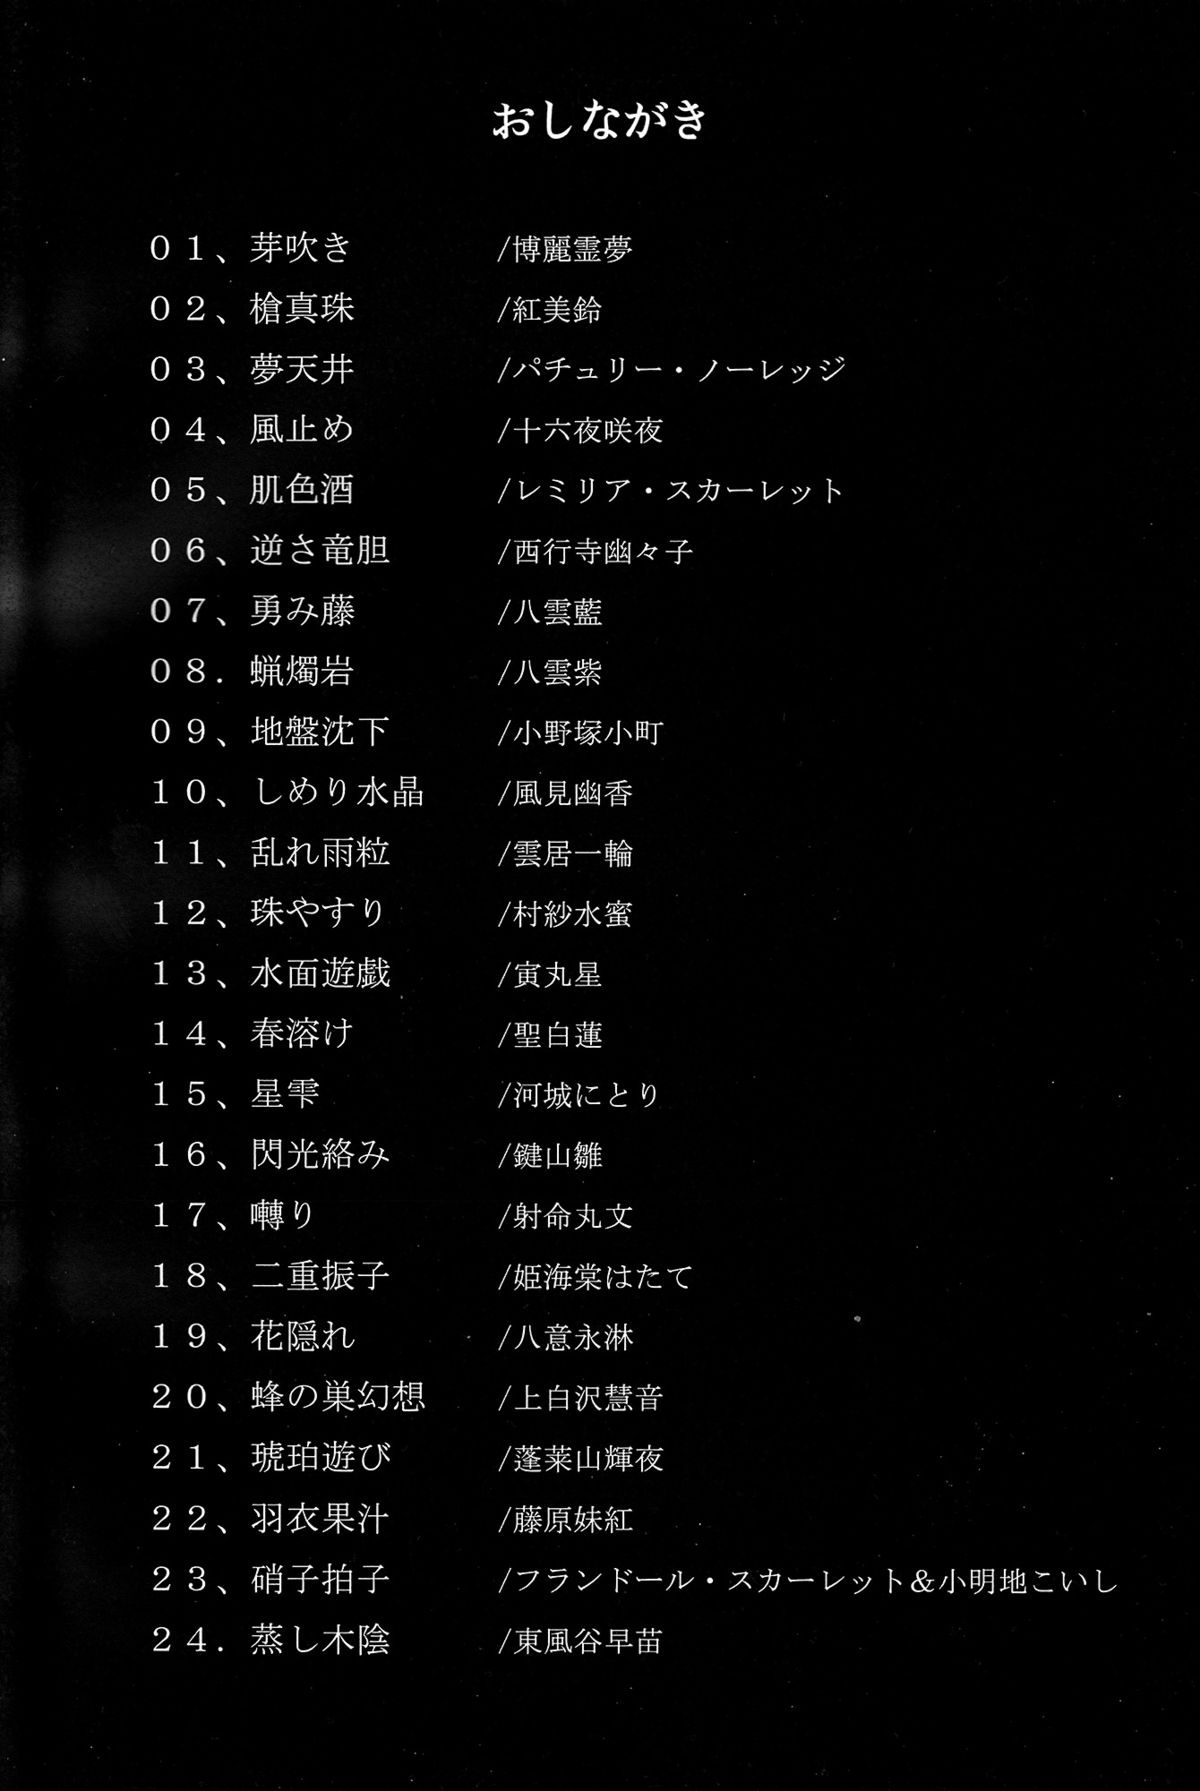 おしながき
01、芽吹き /博麗霊夢
02、槍真珠 /紅美鈴
03、夢天井 /パチュリー・ノーレッジ
04、風止め /十六夜咲夜
05、肌色酒 /レミリア・スカーレット
06、逆さ竜胆 /西行寺幽々子
07、勇み藤 /八雲藍
08．蝋燭岩 /八雲紫
09、地盤沈下 /小野塚小町
10、しめり水晶 /風見幽香
11、乱れ雨粒 /雲居一輪
12、珠やすり /村紗水蜜
13、水面遊戯 /寅丸星
14、春溶け /聖白蓮
15、星雫 /河城にとり
16、閃光絡み /鍵山雛
17、囀り /射命丸文
18、二重振子 /姫海棠はたて
19、花隠れ /八意永淋
20、蜂の巣幻想 /上白沢慧音
21、琥珀遊び /蓬莱山輝夜
22、羽衣果汁 /藤原妹紅
23、硝子拍子 /フランドール・スカーレット＆小明地こいし
24．蒸し木陰 /東風谷早苗